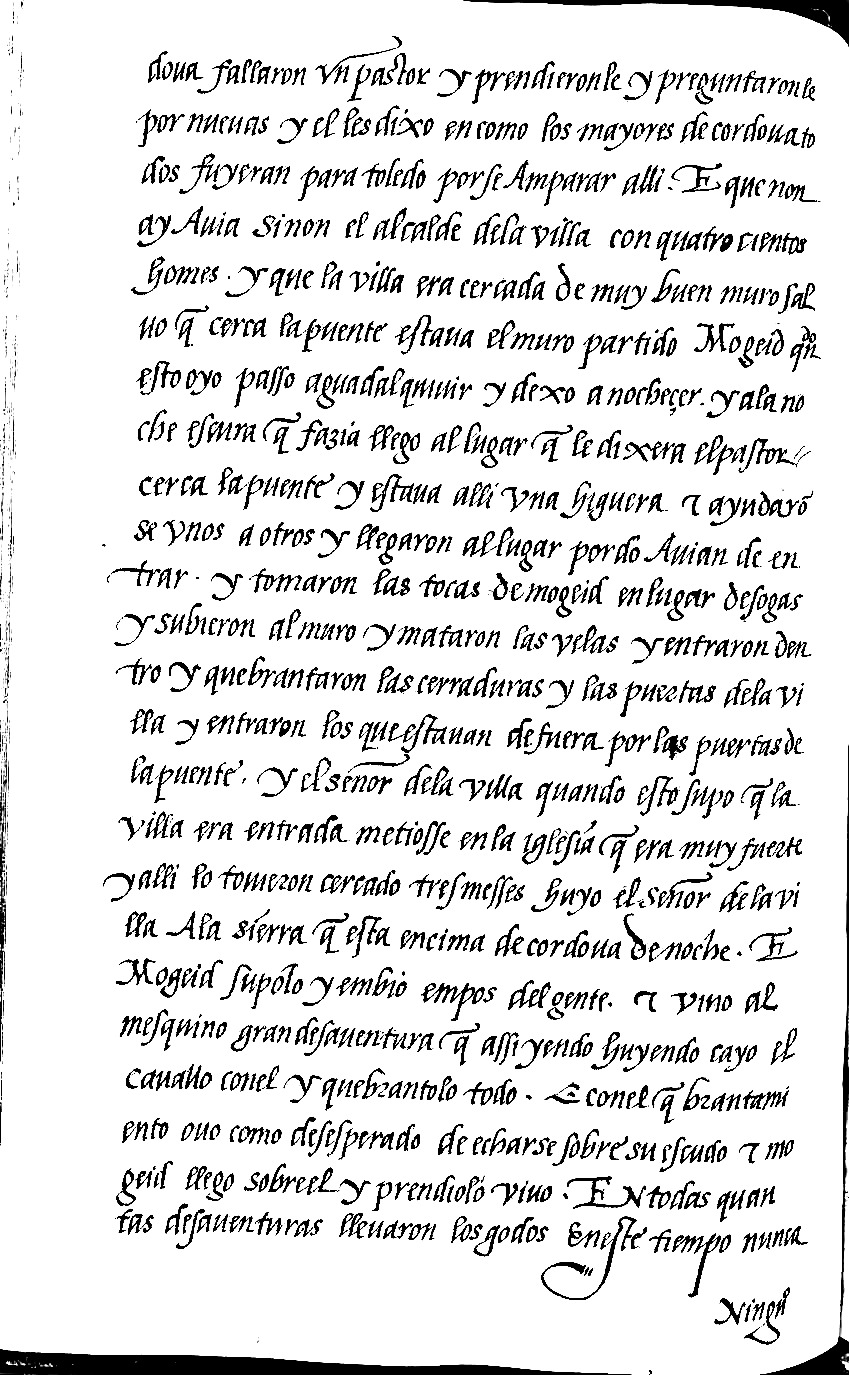 doua fallaron vn pastor y prendieronle y preguntaronle
por nueuas y el les dixo en como los mayores de cordoua to
dos fuyeran para toledo por se Amparar alli. E que non
ay Auia sinon el alcalde dela villa con quatro cientos
homes. y que la villa era cercada de muy buen muro sal
uo q̃ cerca la puente estaua el muro partido Mogeid qn̄do
esto oyo passo aguadalquiuir y dexo a nocheçer. y ala no
che escura q̃ fazia llego al lugar q̃ le dixera el pastor //
cerca la puente y estaua alli vna higuera τ ayudarõ
se vnos a otros y llegaron al lugar por do Auian de en
trar. y tomaron las tocas de mogeid en lugar de sogas
y subieron al muro y mataron las velas y entraron den
tro y quebrantaron las cerraduras y las puertas dela vi
lla y entraron los que estauan de fuera por las puertas de
la puente. y el señor dela villa quando esto supo q̃ la
villa era entrada metiosse en la iglesia q̃ era muy fuerte
y alli lo touieron cercado tres messes huyo el señor de la vi
lla A la sierra q̃ esta encima de cordoua de noche. E
Mogeid supolo y embio empos del gente. τ vino al
mesquino gran desauentura q̃ assi yendo huyendo cayo el
cauallo con el y quebrantolo todo. E con el q̃brantami
ento ouo como desesperado de echarse sobre su escudo τ mo
geid llego sobre el y prendiolo viuo. EN todas quan
tas desauenturas lleuaron los godos Eneste tiempo nunca
Ningũ